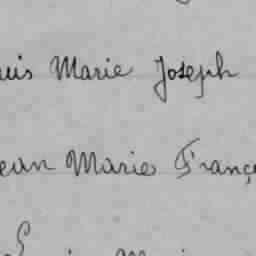 uis Marie Joseph
ean Marie Franç